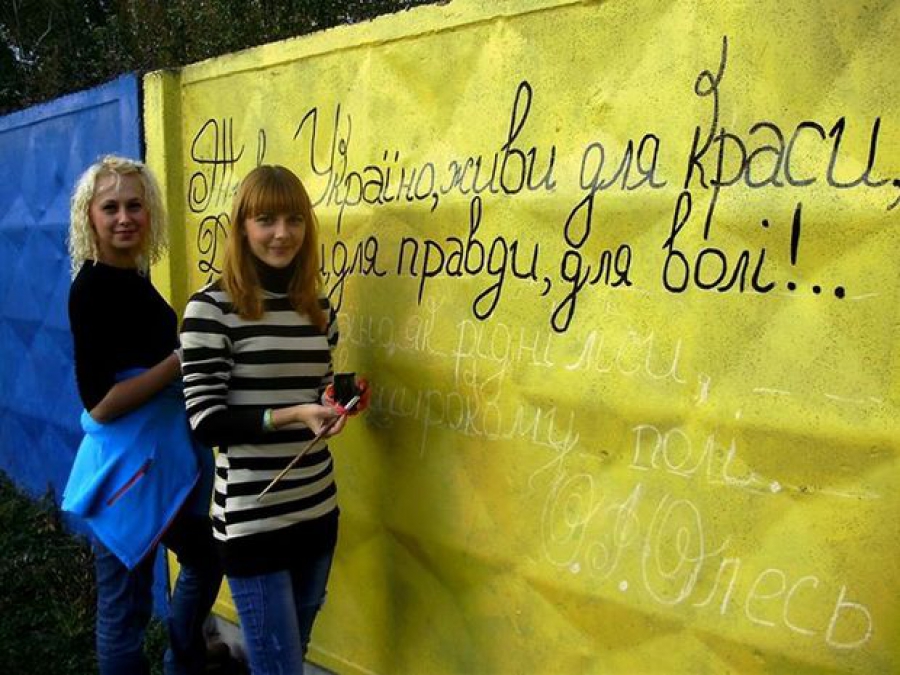 Україно, живи для краси,
для правди, для волі!..
як рідні ліси,
широкому полі.
Олесь